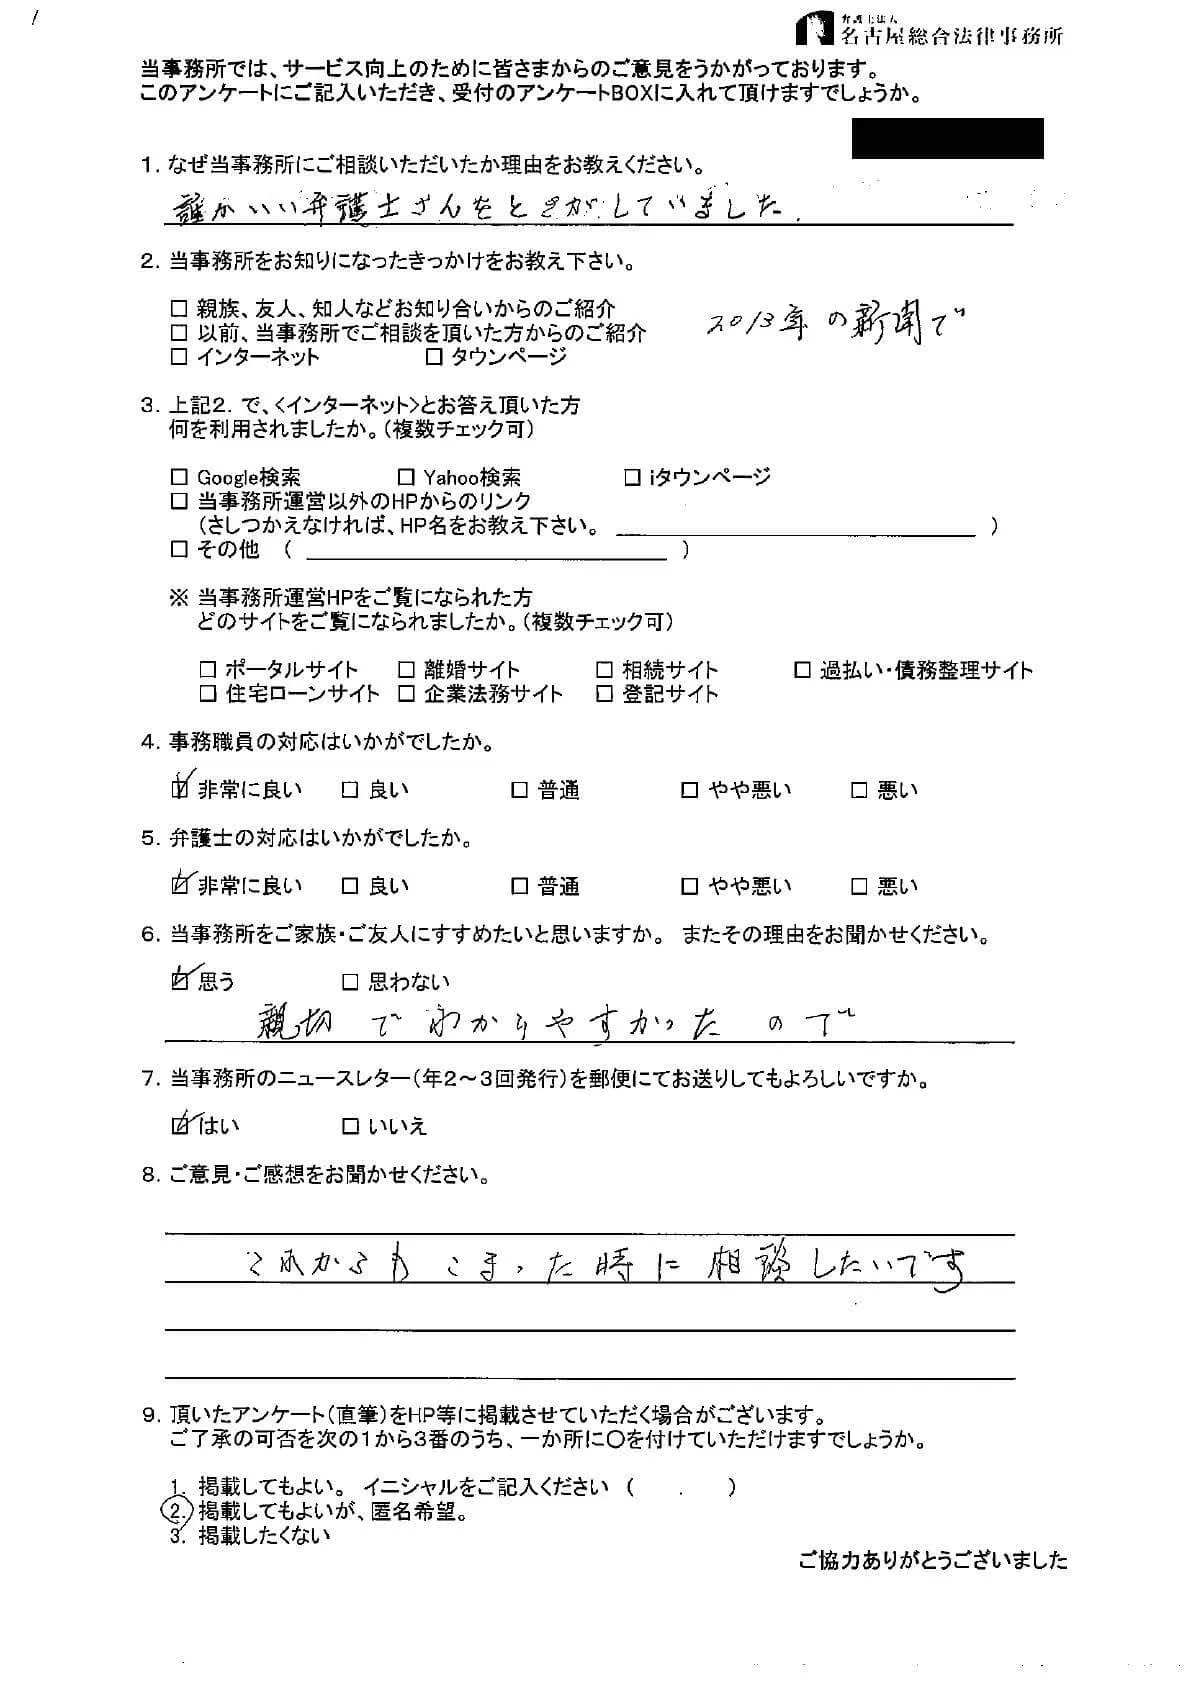 弁護士法人
名古屋総合法律事務所
当事務所では、サービス向上のために皆さまからのご意見をうかがっております。
このアンケートにご記入いただき、受付のアンケートBOXに入れて頂けますでしょうか。
1. なぜ当事務所にご相談いただいたか理由をお教えください。
誰かいい弁護士さんをとさがしていました.
2. 当事務所をお知りになったきっかけをお教え下さい。
□ 親族、友人、知人などお知り合いからのご紹介
2013年の新聞で
□ 以前、当事務所でご相談を頂いた方からのご紹介
□ インターネット □ タウンページ
3. 上記2. で、<インターネット>とお答え頂いた方
何を利用されましたか。(複数チェック可)
□ Google検索 □ Yahoo検索 □ iタウンページ
□ 当事務所運営以外のHPからのリンク
(さしつかえなければ、HP名をお教え下さい。 )
□ その他 ( )
※ 当事務所運営HPをご覧になられた方
どのサイトをご覧になられましたか。(複数チェック可)
□ ポータルサイト □ 離婚サイト □ 相続サイト □ 過払い・債務整理サイト
□ 住宅ローンサイト □ 企業法務サイト □ 登記サイト
4. 事務職員の対応はいかがでしたか。
☑ 非常に良い □ 良い □ 普通 □ やや悪い □ 悪い
5. 弁護士の対応はいかがでしたか。
☑ 非常に良い □ 良い □ 普通 □ やや悪い □ 悪い
6. 当事務所をご家族・ご友人にすすめたいと思いますか。 またその理由をお聞かせください。
☑ 思う □ 思わない
親切でわかりやすかったので
7. 当事務所のニュースレター(年2～3回発行)を郵便にてお送りしてもよろしいですか。
☑ はい □ いいえ
8. ご意見・ご感想をお聞かせください。
これからもこまった時に相談したいです
9. 頂いたアンケート(直筆)をHP等に掲載させていただく場合がございます。
ご了承の可否を次の1から3番のうち、一か所に○を付けていただけますでしょうか。
1. 掲載してもよい。 イニシャルをご記入ください ( . )
2. 掲載してもよいが、匿名希望。
3. 掲載したくない
ご協力ありがとうございました